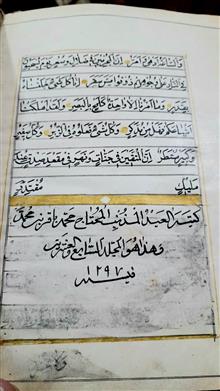 وَالسَّاعَةُ أَدْهَىٰ وَأَمَرُّ إِنَّ الْمُجْرِمِينَ فِي ضَلَالٍ وَسُعُرٍ يَوْمَ يُسْحَبُونَ
فِي النَّارِ عَلَىٰ وُجُوهِهِمْ ذُوقُوا مَسَّ سَقَرَ إِنَّا كُلَّ شَيْءٍ خَلَقْنَاهُ
بِقَدَرٍ وَمَا أَمْرُنَا إِلَّا وَاحِدَةٌ كَلَمْحٍ بِالْبَصَرِ وَلَقَدْ أَهْلَكْنَا
أَشْيَاعَكُمْ فَهَلْ مِنْ مُدَّكِرٍ وَكُلُّ شَيْءٍ فَعَلُوهُ فِي الزُّبُرِ وَكُلُّ صَغِيرٍ
وَكَبِيرٍ مُسْتَطَرٌ إِنَّ الْمُتَّقِينَ فِي جَنَّاتٍ وَنَهَرٍ فِي مَقْعَدِ صِدْقٍ عِنْدَ
مَلِيكٍ مُقْتَدِرٍ
كتبه العبد المذنب المحتاج محمد باقر بن محمد
وهذا هو المجلد السابع والعشرين
في سنه ١٢٩٧